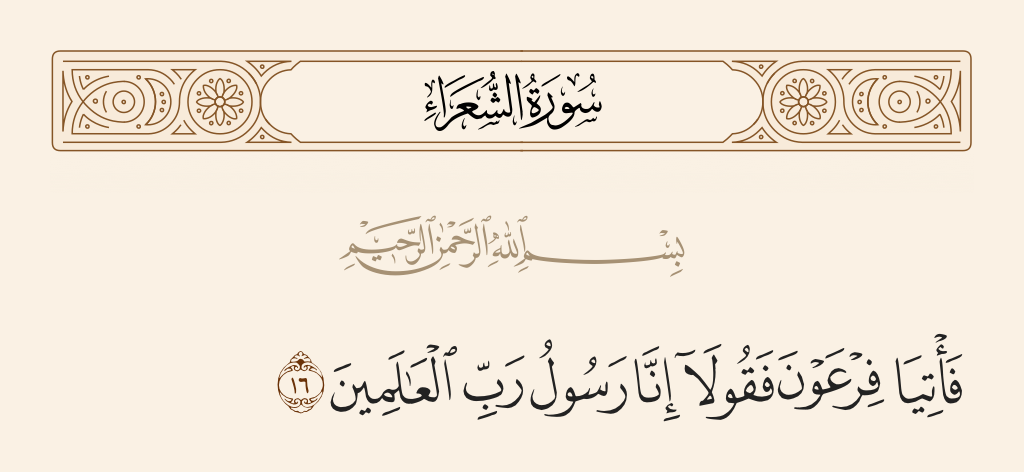 سُورَةُ الشُّعَرَاءِ
بِسْمِ ٱللَّهِ ٱلرَّحْمَٰنِ ٱلرَّحِيمِ
فَأْتِيَا فِرْعَوْنَ فَقُولَآ إِنَّا رَسُولُ رَبِّ ٱلْعَٰلَمِينَ ١٦